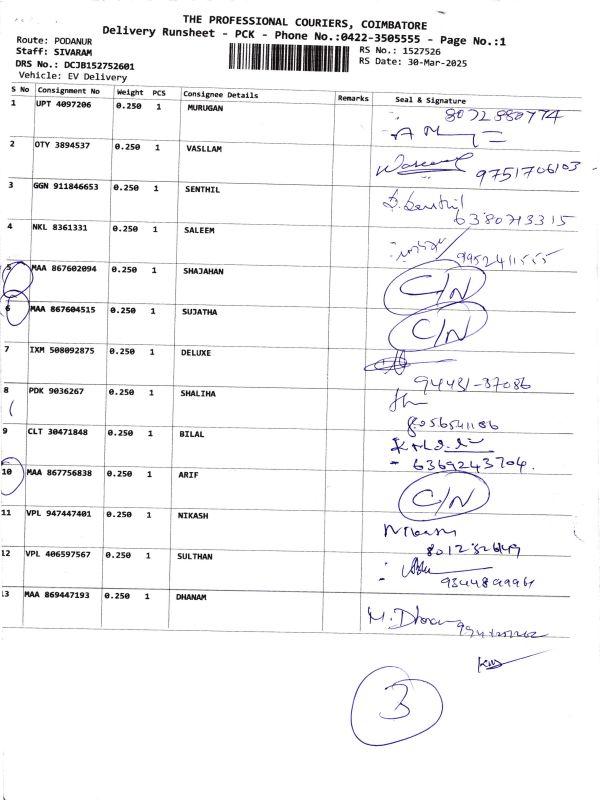 THE PROFESSIONAL COURIERS, COIMBATORE
Delivery Runsheet - PCK - Phone No.:0422-3505555 - Page No.:1
Route: PODANUR
Staff: SIVARAM RS No.: 1527526
DRS No.: DCJB152752601 RS Date: 30-Mar-2025
Vehicle: EV Delivery
S No Consignment No Weight PCS Consignee Details Remarks Seal & Signature
1 UPT 4097206 0.250 1 MURUGAN 8072880774
2 OTY 3894537 0.250 1 VASLLAM 9751706103
3 GGN 911846653 0.250 1 SENTHIL B. Senthil
6380713315
4 NKL 8361331 0.250 1 SALEEM
9952411555
5 MAA 867602094 0.250 1 SHAJAHAN C/N
6 MAA 867604515 0.250 1 SUJATHA C/N
7 IXM 508092875 0.250 1 DELUXE
94431-37086
8 PDK 9036267 0.250 1 SHALIHA
8056541186
9 CLT 30471848 0.250 1 BILAL
6369243704.
10 MAA 867756838 0.250 1 ARIF C/N
11 VPL 947447401 0.250 1 NIKASH Nikash
12 VPL 406597567 0.250 1 SULTHAN
13 MAA 869447193 0.250 1 DHANAM M. Dhanam
3